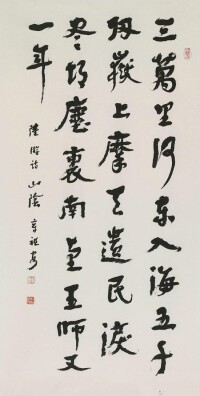 三萬里河東入海五千
仞嶽上摩天遺民淚
盡胡塵裏南望王師又
一年
陸游詩 山陰 章祖安